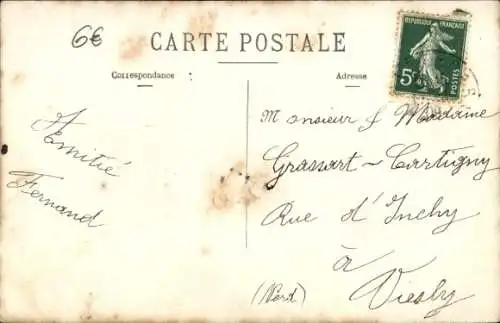 6€
CARTE POSTALE
Correspondance
Adresse
REPUBLIQUE FRANÇAISE
5c
POSTES
Monsieur & Madame
Grassart-Cartigny
Rue d'Inchy
à
Viesly
(Nord)
Amitié
Fernand